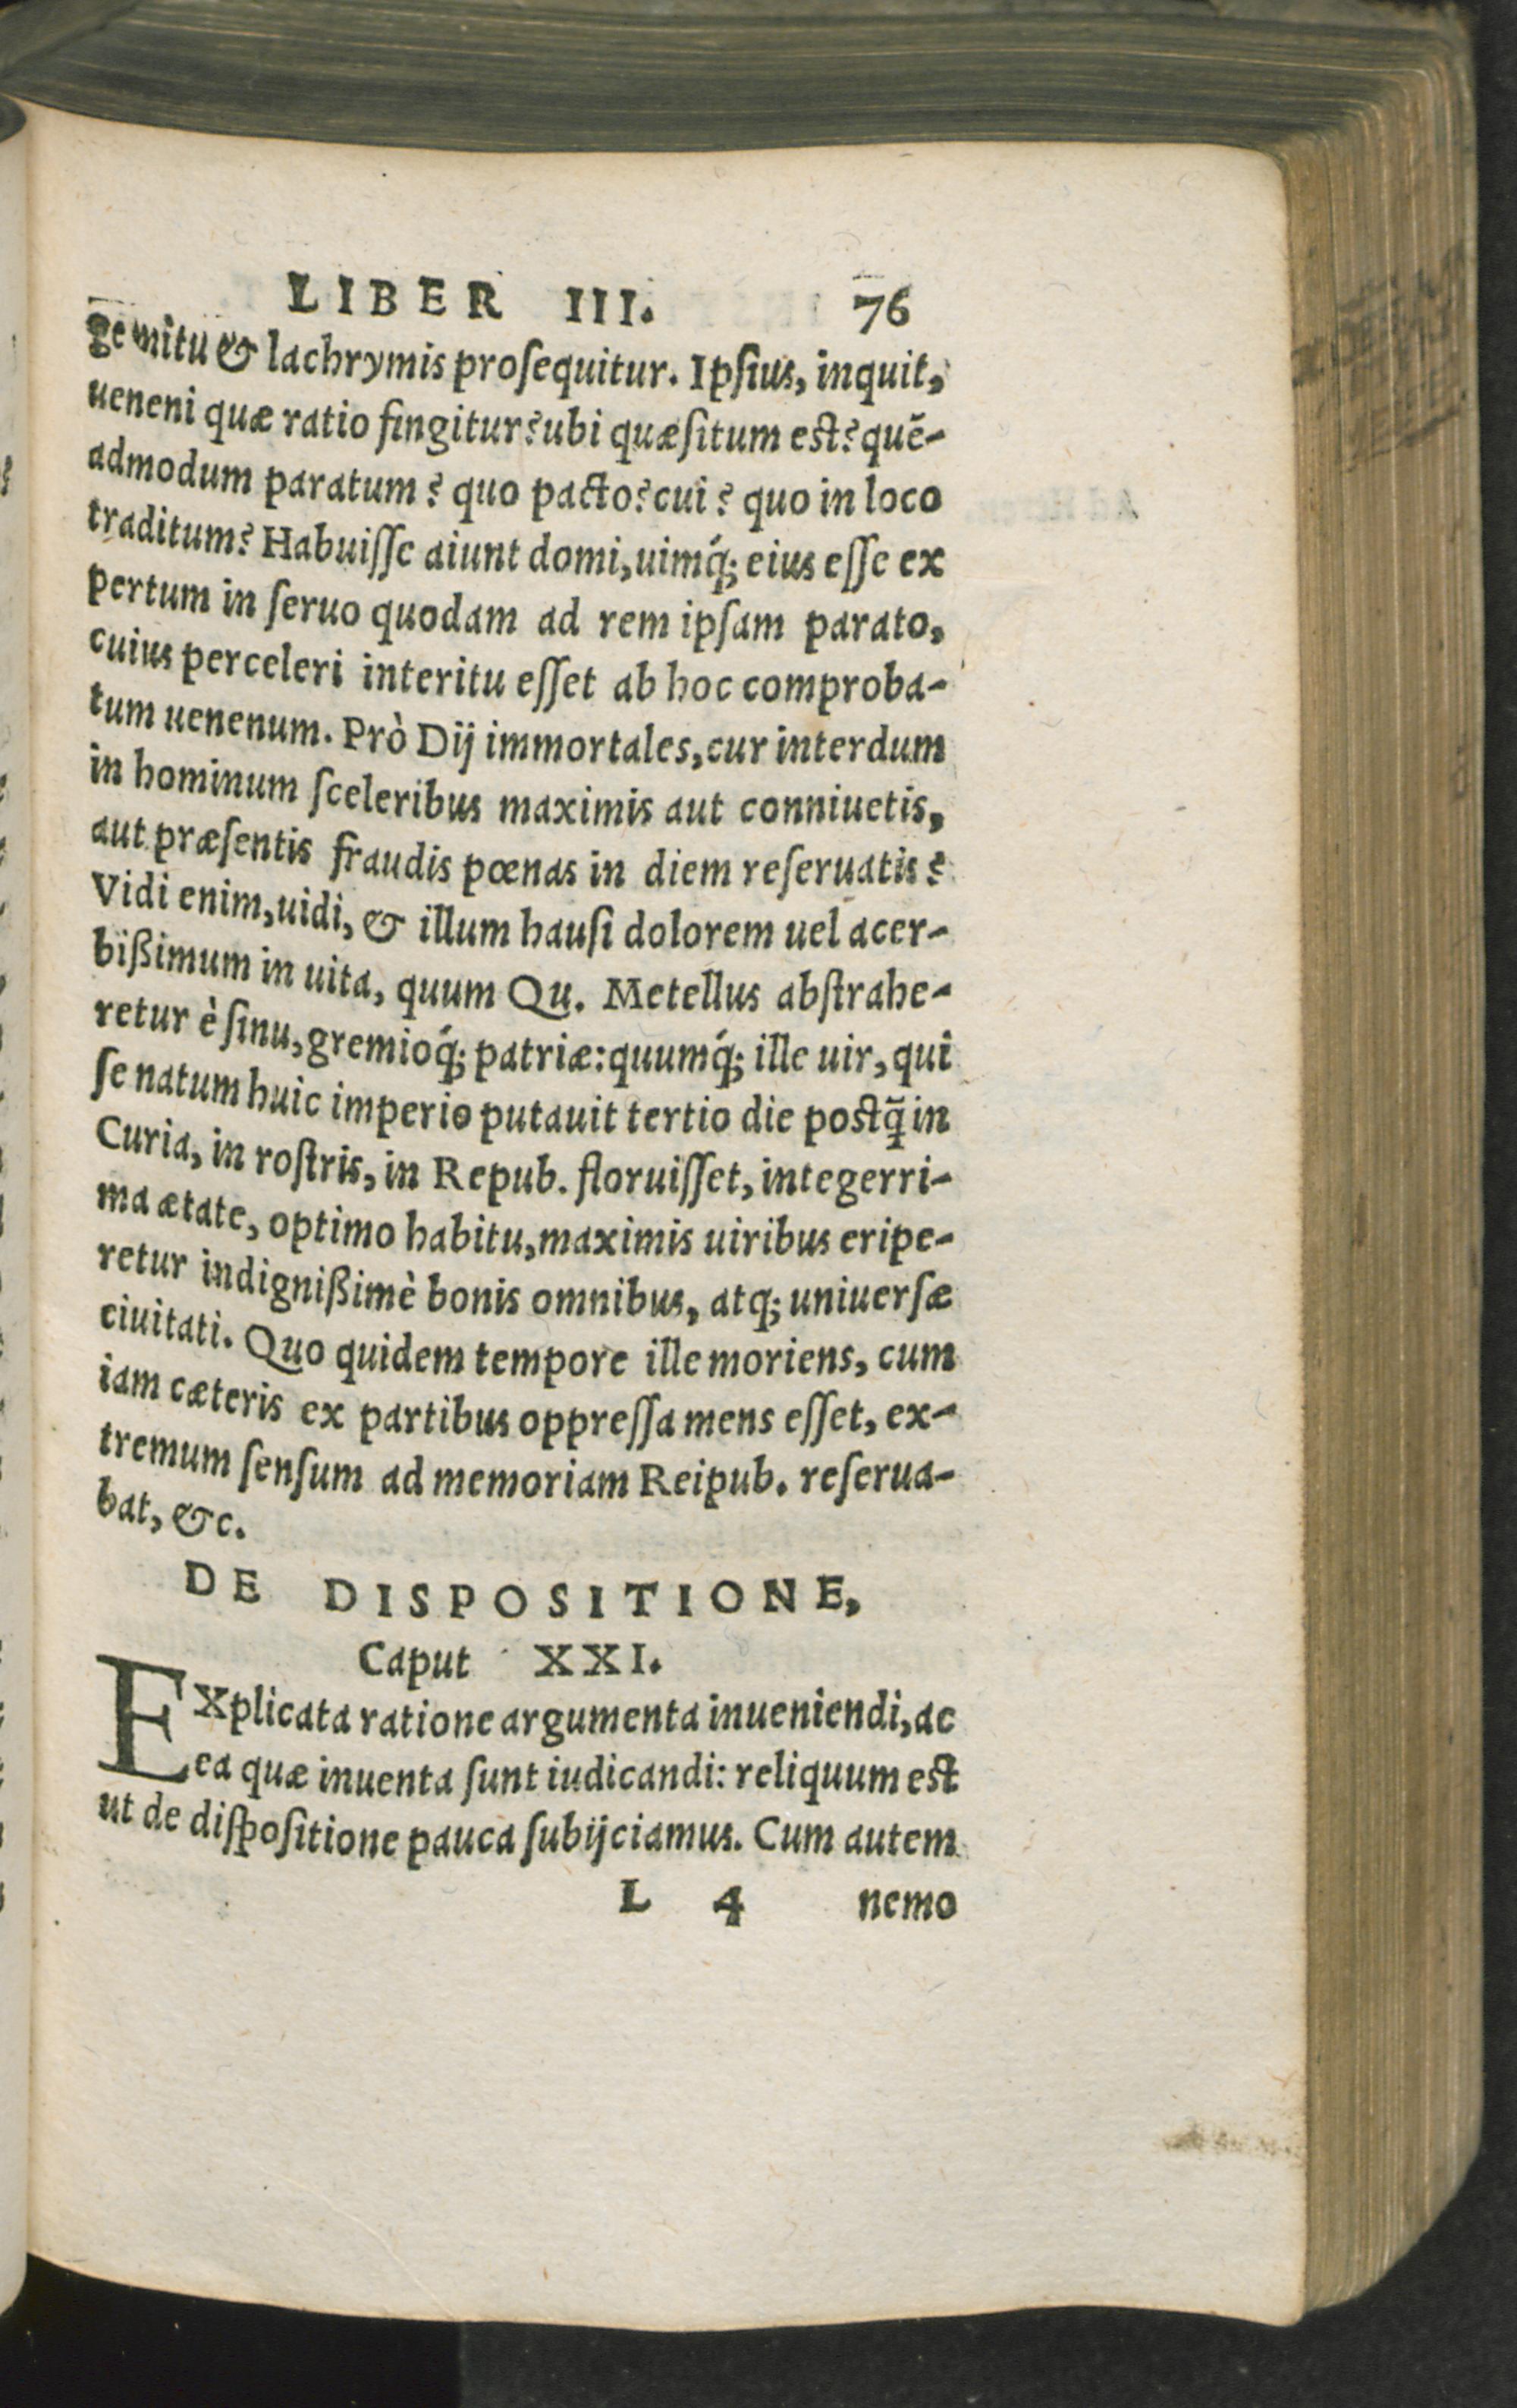 LIBER III. 76
gemitu & lachrymis proſequitur. Ipſius, inquit,
ueneni quæ ratio fingitur? ubi quæſitum est? quē-
admodum paratum? quo pacto? cui? quo in loco
traditum? Habuiſſe aiunt domi, uimq́; eius eſſe ex
pertum in ſeruo quodam ad rem ipſam parato,
cuius perceleri interitu eſſet ab hoc comproba-
tum uenenum. Prò Dij immortales, cur interdum
in hominum ſceleribus maximis aut conniuetis,
aut præſentis fraudis pœnas in diem reſeruatis?
Vidi enim, uidi, & illum hauſi dolorem uel acer-
bißimum in uita, quum Qu. Metellus abſtrahe-
retur è ſinu, gremioq́; patriæ: quumq́; ille uir, qui
ſe natum huic imperio putauit tertio die postq̃ in
Curia, in roſtris, in Repub. floruiſſet, integerri-
ma ætate, optimo habitu, maximis uiribus eripe-
retur indignißimè bonis omnibus, atq; uniuerſæ
ciuitati. Quo quidem tempore ille moriens, cum
iam cæteris ex partibus oppreſſa mens eſſet, ex-
tremum ſenſum ad memoriam Reipub. reſerua-
bat, &c.
DE DISPOSITIONE,
Caput XXI.
EXplicata ratione argumenta inueniendi, ac
ea quæ inuenta ſunt iudicandi: reliquum est
ut de diſpoſitione pauca ſubijciamus. Cum autem
L 4 nemo